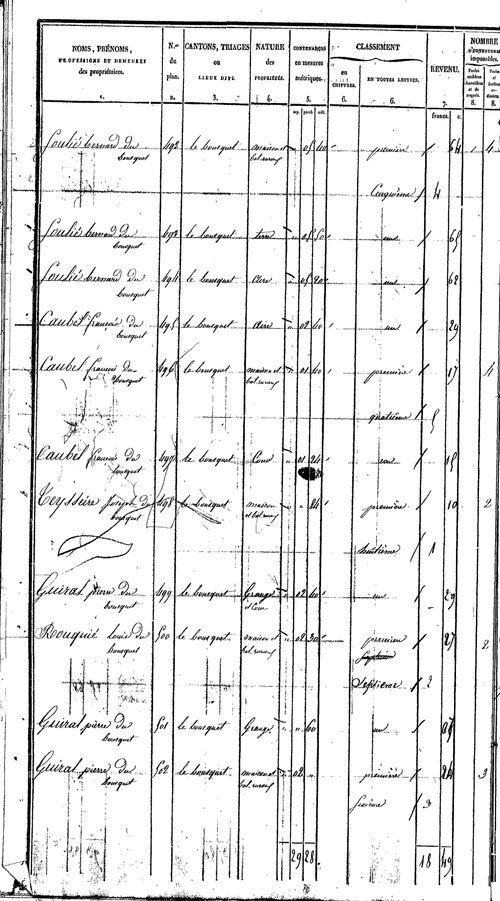 NOMBRE
NOMS, PRÉNOMS, N.os CANTONS, TRIAGES NATURE CONTENANCES CLASSEMENT
PROFESSIONS ET DEMEURES du OU des en mesures REVENU.
des propriétaires. plan. LIEUX DITS. PROPRIÉTÉS. métriques. en CHIFFRES. EN TOUTES LETTRES. imposables.
1. 2. 3. 4. 5. 6. 6. 7. 8. 8.
francs. c.
Soulié bernard du 492 le bousquet maison et 05 40 première 64 1 4
bousquet bat. rural
Cinquième 4
Soulié bernard du 493 le bousquet terre 05 50 un 65
bousquet
Soulié bernard du 494 le bousquet aire 05 20 un 62
bousquet
Caubel françois du 495 le bousquet aire 02 40 un 29
bousquet
Caubel françois du 496 le bousquet maison et 01 40 première 17 4
bousquet bat. rural
quatrième 5
Caubel françois du 497 le bousquet Cour 01 24 un 15
bousquet
Teysseire Joseph du 498 le bousquet maison 84 première 10 2
bousquet et bat. rural
huitième 1
Guiral pierre du 499 le bousquet Grange 02 40 un 29
bousquet et Cour
Rouquié louis du 500 le bousquet maison et 02 30 première 27 2
bousquet bat. rural
Septième 2
Guiral pierre du 501 le bousquet Grange 60 un 07
bousquet
Guiral pierre du 502 le bousquet maison et 02 première 24 3
bousquet bat. rural
Sixième 3
29 28 18 49